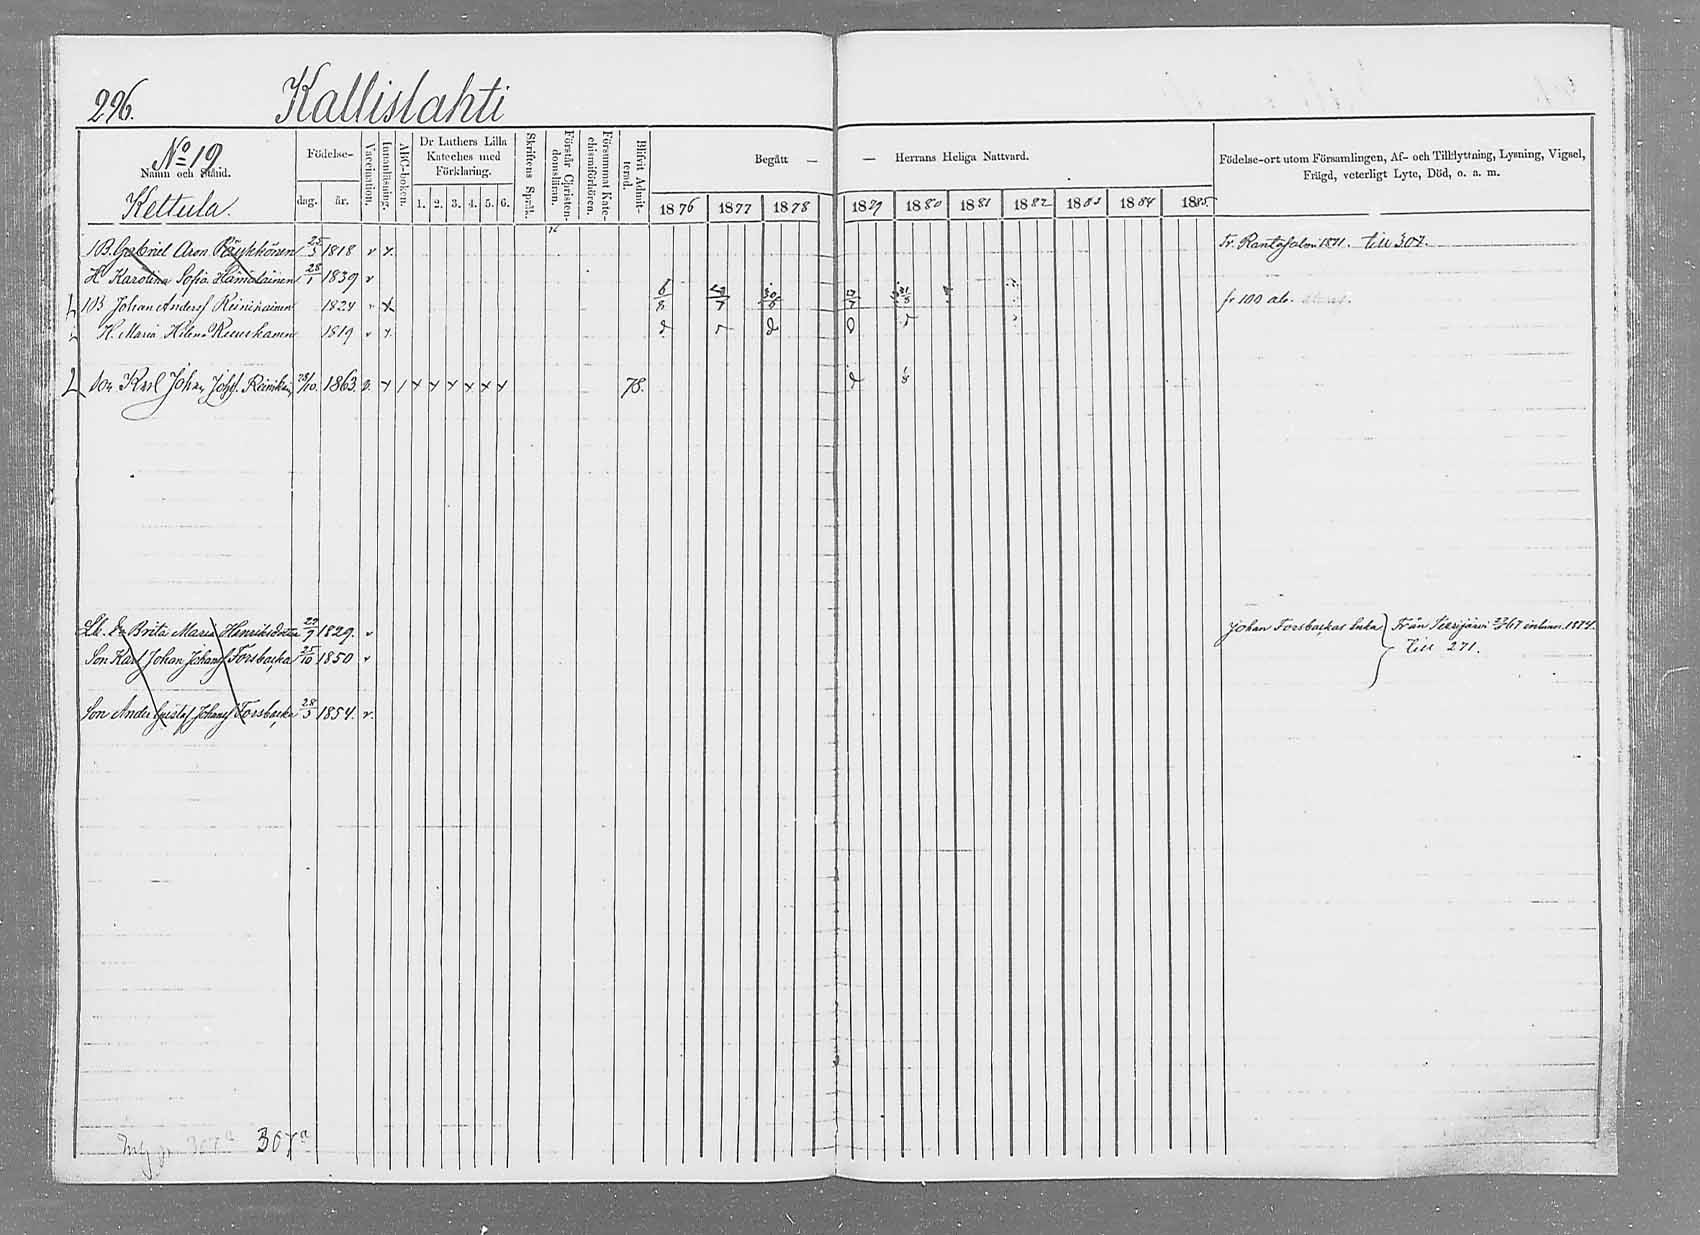 296. Kallislahti
No 19.
Namn och Stånd.
Kettula.
Födelse-
dag. år.
Vaccination.
Innanläsning.
ABC-boken.
Dr Luthers Lilla
Kateches med
Förklaring.
1. 2. 3. 4. 5. 6.
Skriftens Språk.
Förstår Christen-
domsläran.
Försummat Kate-
chismiförhören.
Blifvit Admit-
terad.
Begått — — Herrans Heliga Nattvard.
1876 1877 1878 1879 1880 1881 1882 1883 1884 1885
Födelse-ort utom Församlingen, Af- och Tillflyttning, Lysning, Vigsel,
Frägd, veterligt Lyte, Död, o. a. m.
B. Gabriel Aron 1818 v x. Fr. Rantasalmi 1871. till 307.
H. Karolina Sofia Hämäläinen 28/1 1839 v
Johan Andersf Reinikainen 1824 x fr 100 ab.
H. Maria Helena 1819 v x
Son Karl Johan Johsf. 1863 v. x 1 x x x x x x 78.
Brita Maria Henriksdotter 29/9 1829. v Johan Forsbackas enka
Son Karl Johan Johansf Forsbacka 25/10 1850 v till 271.
Son Anders Gustaf Johansf Forsbacka 28/3 1854. v.
307a 307a